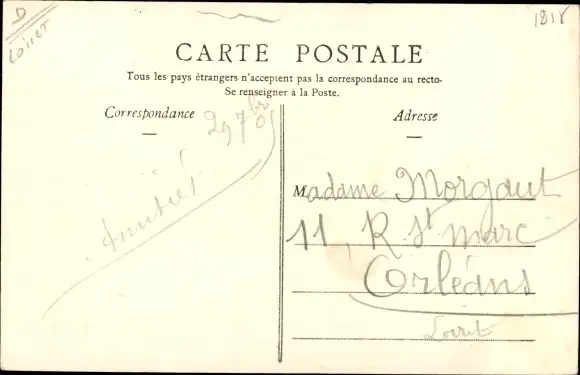 D
Loiret
1818
CARTE POSTALE
Tous les pays étrangers n'acceptent pas la correspondance au recto-
Se renseigner à la Poste.
Correspondance
Adresse
29 7br 05
Amitiés
Madame Morgaut
11, R. St marc
Orléans
Loiret